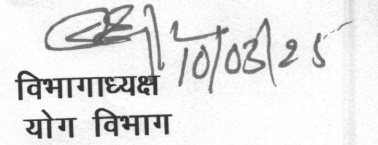 10/03/25
विभागाध्यक्ष
योग विभाग